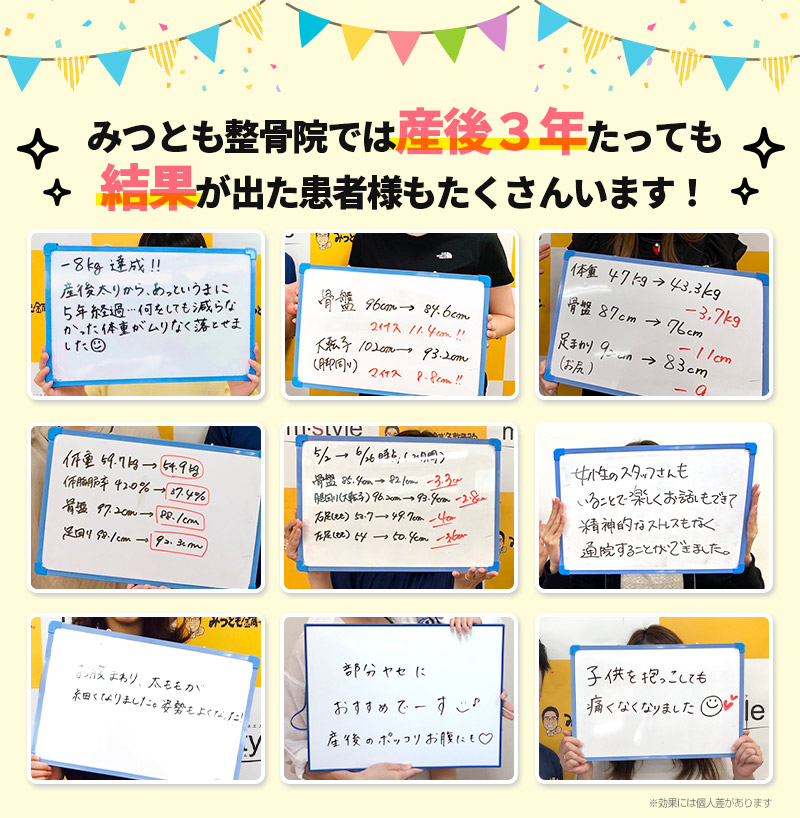 みつとも整骨院では産後３年たっても
結果が出た患者様もたくさんいます！
-8kg 達成!!
産後太りから、あっというまに
5年経過…何をしても減らな
かった体重がムリなく落とせま
した
骨盤 96cm → 84.6cm
マイナス 11.4cm!!
大転子 102cm → 93.2cm
(脚回り)
マイナス 8.8cm!!
体重 47kg → 43.3kg
-3.7kg
骨盤 87cm → 76cm
-11cm
足まわり → 83cm
(お尻)
体重 59.7kg → 54.9kg
体脂肪率 42.0% → 37.4%
骨盤 97.2cm → 88.1cm
足回り 98.1cm → 93.3cm
5/2 → 6/26時点
骨盤 85.4cm → 82.1cm -3.3cm
腿回り(大転子) 96.2cm → 93.4cm -2.8cm
右足(もも) 53.7 → 49.7cm -4cm
左足(もも) 54 → 50.4cm -3.6cm
女性のスタッフさんも
いることで楽しくお話もできて
精神的なストスもなく
通院することができました。
お腹まわり、太ももが
細くなりました。姿勢もよくなった!
部分ヤセに
おすすめでーす♪
産後のポッコリお腹にも♡
みつとも
子供を抱っこしても
痛くなくなりました
※効果には個人差があります